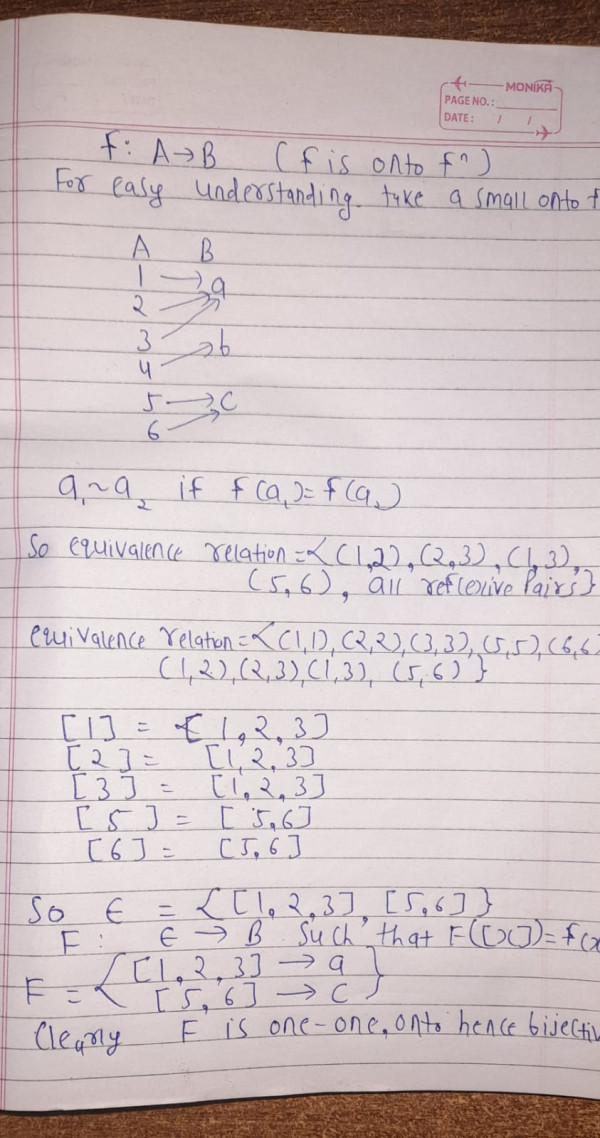 MONIKA
PAGE NO.:
DATE: / /
f: A→B (f is onto fⁿ)
For easy understanding take a small onto f
A B
1 → a
2
3
4 → b
5 → c
6
a₁~a₂ if f(a₁)=f(a₂)
So equivalence relation={(1,2),(2,3),(1,3),
(5,6), all reflexive Pairs}
equivalence relation={(1,1),(2,2),(3,3),(5,5),(6,6)
(1,2),(2,3),(1,3), (5,6)}
[1] = [1,2,3]
[2] = [1,2,3]
[3] = [1,2,3]
[5] = [5,6]
[6] = [5,6]
So ϵ = {[1,2,3],[5,6]}
F: ϵ → B Such that F([x])=f(x
F = {[1,2,3] → a
[5,6] → c}
Clearly F is one-one, onto hence bijectiv